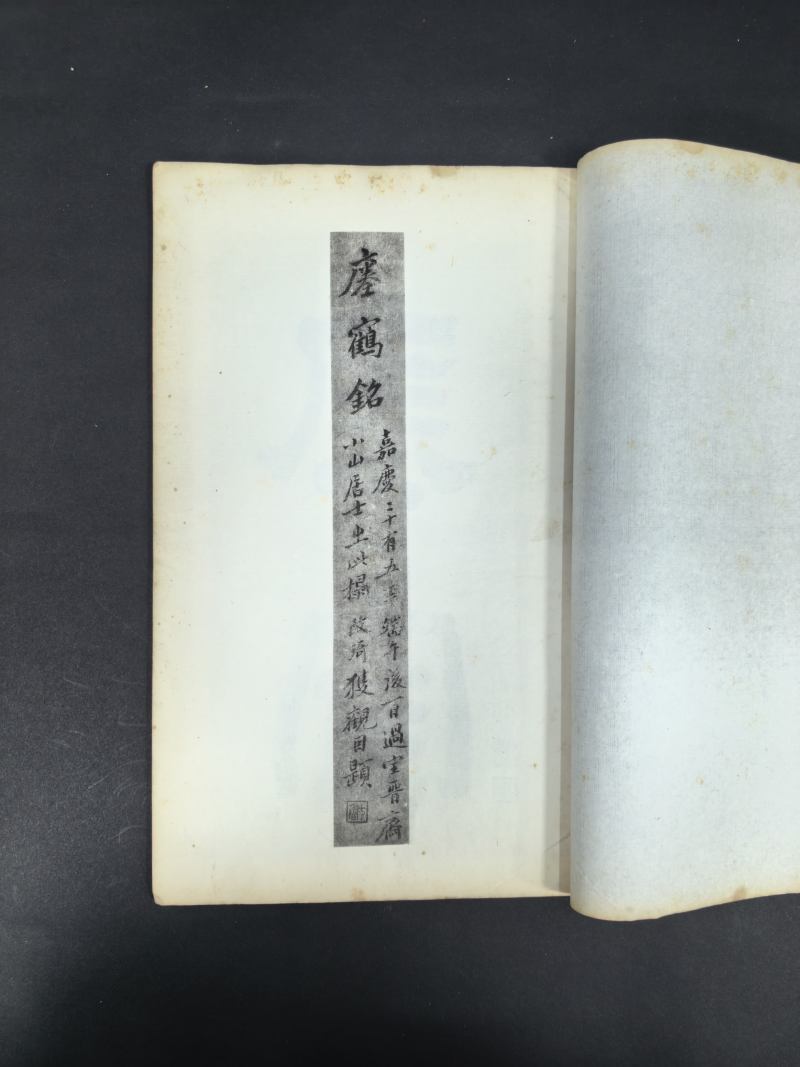 瘗鶴銘
嘉慶二十有五年端午後一日過宝晋齋
小山居士出此搨改琦獲觀因題